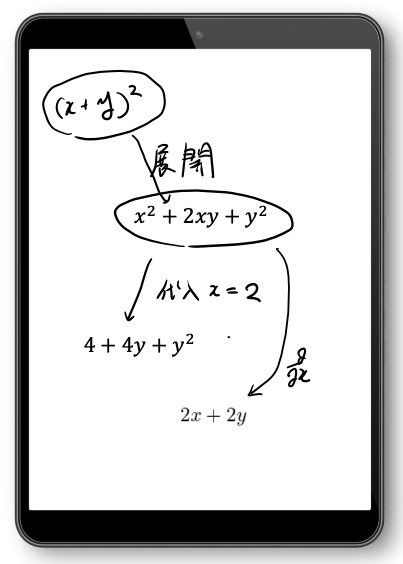 (x+y)²
展開
x² + 2xy + y²
代入 x = 2
4 + 4y + y²
∂/∂x
2x + 2y